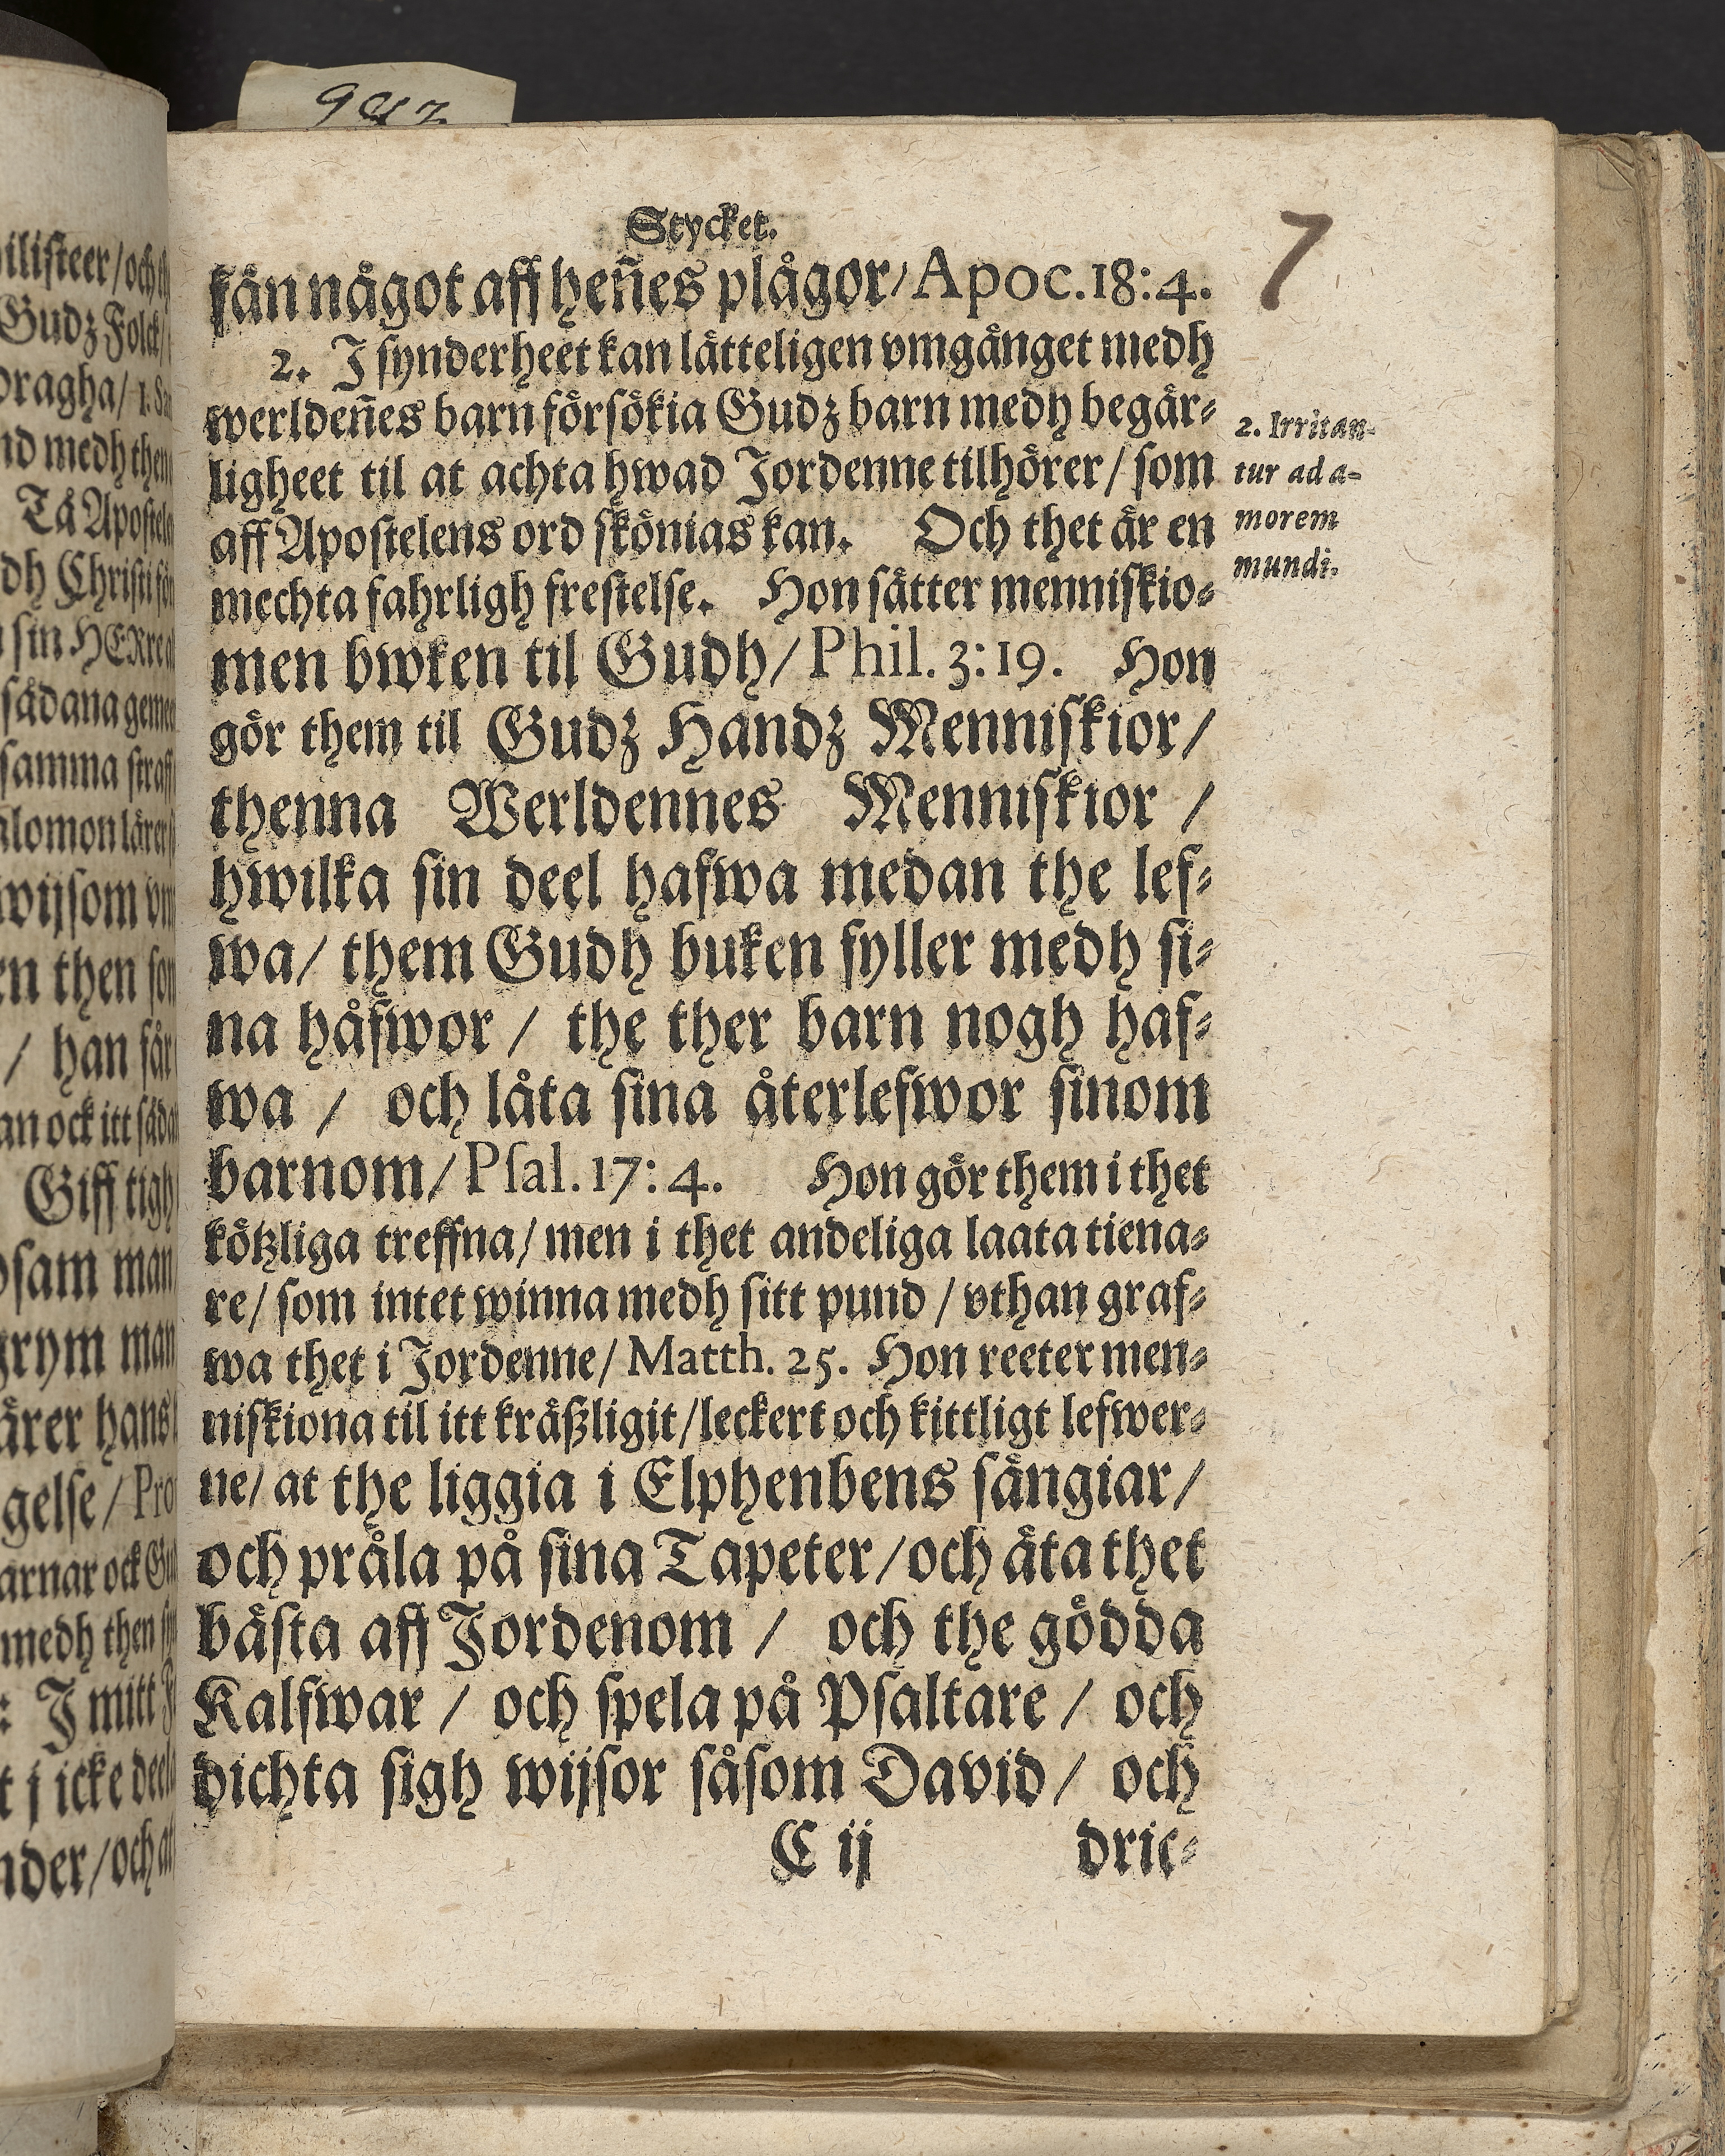 Stycket.
7
fån något aff heñes plågor/ Apoc. 18: 4.
2. J synderheet kan lätteligen vmgånget medh
werldeñes barn försökia Gudz barn medh begär-
ligheet til at achta hwad Jordenne tilhörer/ som
aff Apostelens ord skönias kan. Och thet är en
mechta fahrligh frestelse. Hon sätter menniskio-
men bwken til Gudh/ Phil. 3: 19. Hon
gör them til Gudz Handz Menniskior/
thenna Werldennes Menniskior /
hwilka sin deel hafwa medan the lef-
wa/ them Gudh buken fyller medh si-
na håfwor / the ther barn nogh haf-
wa / och låta sina återlefwor sinom
barnom/ Psal. 17: 4. Hon gör them i thet
kötzliga treffna/ men i thet andeliga laata tiena-
re/ som intet winna medh sitt pund / vthan graf-
wa thet i Jordenne/ Matth. 25. Hon reeter men-
niskiona til itt kräßligit/ leckert och kittligt lefwer-
ne/ at the liggia i Elphenbens sängiar/
och pråla på sina Tapeter/ och äta thet
bästa aff Jordenom / och the gödda
Kalfwar / och spela på Psaltare / och
dichta sigh wijsor såsom David/ och
C ij dric-
2. Irritan-
tur ad a-
morem
mundi.
ilisteer/ och
Gudz Folck/
dragha/ 1.
nd medh then
Tå Apostele
dh Christi
sin HERre
sådana
samma straff
alomon lärer
wijsom
en then
/ han får
an ock itt
Giff tigh
sam man
grym man
ärer hans
gelse/ Pro
arnar ock
medh then
: J mitt
t j icke
nder/ och at